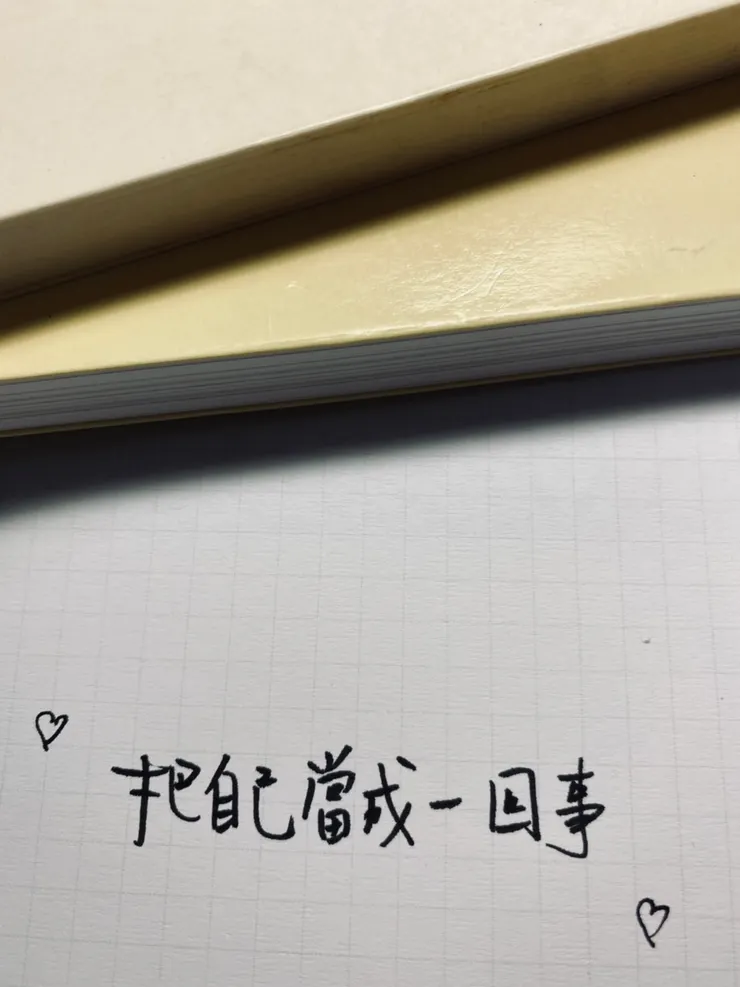 把自己當成一回事